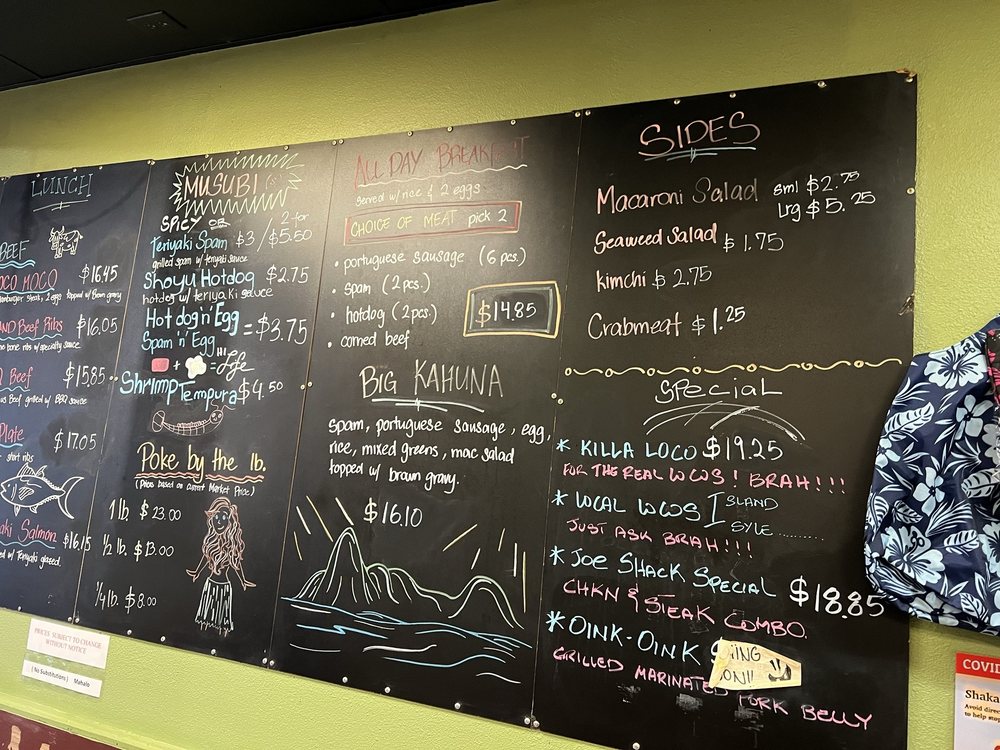 LUNCH
BEEF
OCO MOCO $16.45
hamburger steak, 2 eggs topped w/ Brown gravy
AND Beef Ribs $16.05
bone ribs w/ specialty sauce
Q Beef $15.85
us Beef grilled w/ BBQ sauce
Plate $17.05
short ribs
aki Salmon $16.15
ed w/ Teriyaki glazed
PRICES SUBJECT TO CHANGE
WITHOUT NOTICE
( No Substitutions ) Mahalo
MUSUBI(s)
SPICY OR
Teriyaki Spam $3 / 2 for $5.50
grilled spam w/ teriyaki sauce
Shoyu Hotdog $2.75
hotdog w/ teriyaki sauce
Hot dog 'n' Egg
Spam n' Egg = $3.75
+ = Hi Life
Shrimp Tempura $4.50
Poke by the lb.
(Prices based on current Market Price)
1 lb. $23.00
1/2 lb. $13.00
1/4 lb. $8.00
ALL DAY BREAKFAST
served w/ rice & 2 eggs
CHOICE OF MEAT pick 2
• portuguese sausage (6 pcs.)
• spam (2 pcs.)
• hotdog (2 pcs.)
• corned beef
$14.85
BIG KAHUNA
spam, portuguese sausage, egg,
rice, mixed greens, mac salad
topped w/ brown gravy.
$16.10
SIDES
Macaroni Salad sml $2.75
Lrg $5.25
Seaweed Salad $1.75
kimchi $2.75
Crabmeat $1.25
SPECIAL
* KILLA LOCO $19.25
FOR THE REAL LOCOS! BRAH!!!
* LOCAL LOCOS ISLAND
SYLE..........
JUST ASK BRAH!!!
* JOE SHACK SPECIAL $18.85
CHKN & STEAK COMBO.
* OINK-OINK
GRILLED MARINATED PORK BELLY
COVID
Shaka
Avoid direc
to help stop